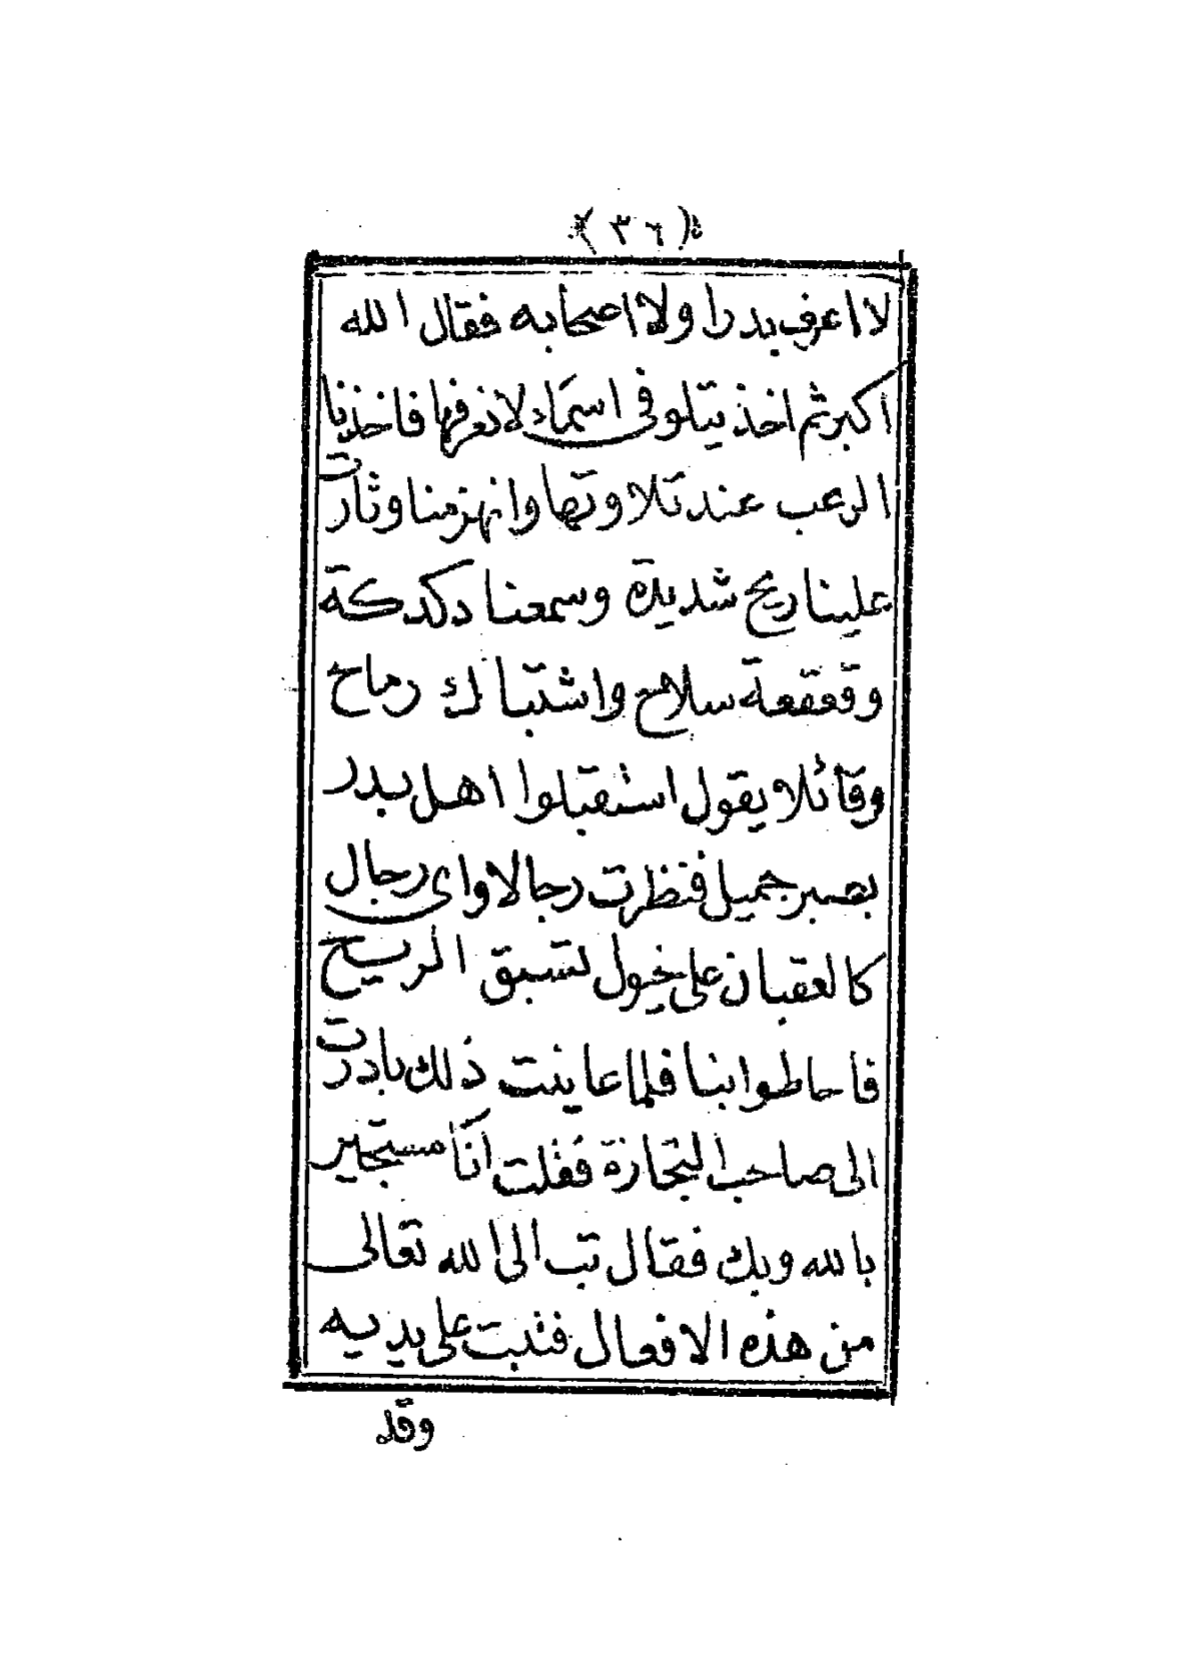 (٣٦)
لا اعرف بدرا ولا اصحابه فقال الله
اكبر ثم اخذ يتلو في اسماء لا نعرفها فاخذنا
الرعب عند تلاوتها وانهزمنا وثارت
علينا ريح شديدة وسمعنا دكدكة
وقعقعة سلاح واشتباك رماح
وقائلا يقول استقبلوا اهل بدر
بصبر جميل فنظرت رجالا واى رجال
كالعقبان على خيول تسبق الريح
فاحاطوا بنا فلما عاينت ذلك بادرت
الى صاحب التجارة فقلت انا مستجير
بالله وبك فقال تب الى الله تعالى
من هذه الافعال فتبت على يديه
وقد